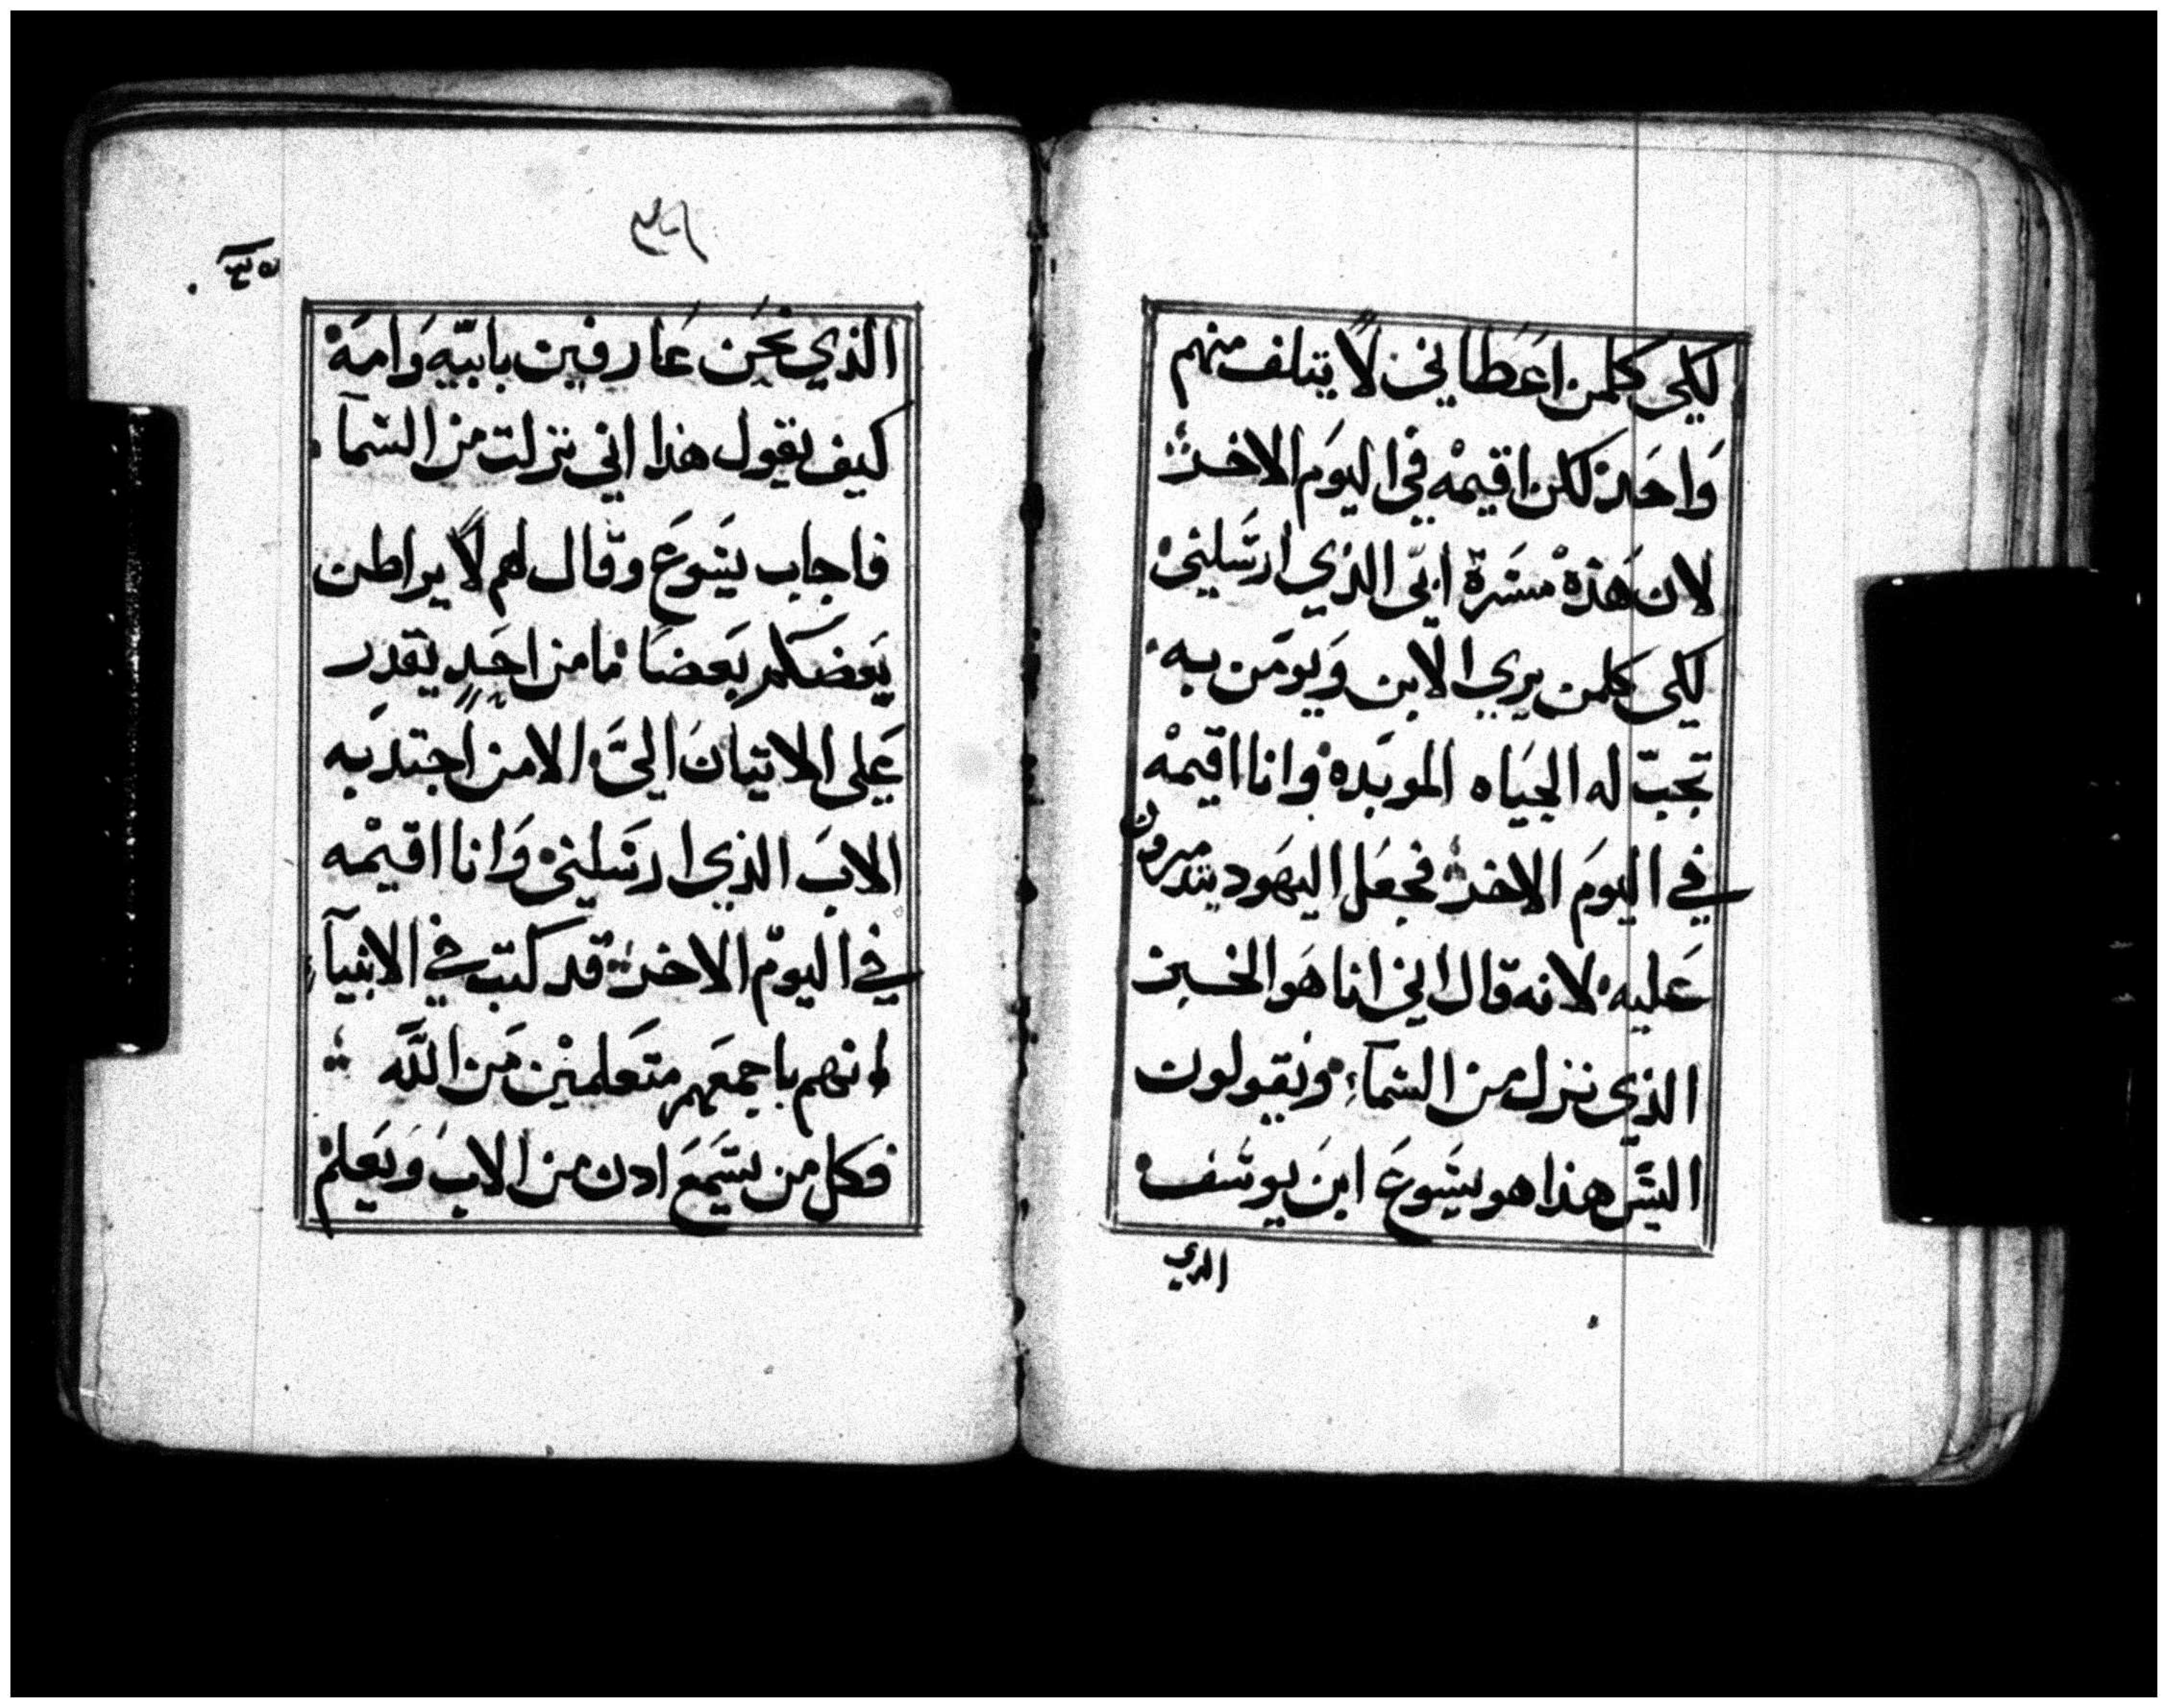 لكي كلمن اعَطاني لًا يتلف منهم
وَاحَد لكن اقيمْه في اليوَم الاخر
لان هَذهْ مسَرة ابي الذي ارسَلني
لكي كلمن يري الابن وَيومَن به
تجبّ له الحيَاه الموبَده وانا اقيمْه
في اليومَ الاخر فجعَل اليهَود يتدمرون
عَليه لانه قال اني انا هَو الخبز
الذي نزل من السَمآء ويقولون
اليسَ هذا هو يسَوعَ ابنَ يوسَف
الدي
الذي نحَن عَارفين بابيّه وَامَه
كيف يقول هذا اني نزلت من السَمآ
فاجاب يسَوعَ وقال لهم لًا يراطن
بَعضكم بَعضًا ما من احَدٍ يقدر
عَلي الاتيانَ اليَّ الا من اجتدبَه
الابَ الذي ارسَلني وَانا اقيمْه
في اليومْ الاخر قد كتب في الانبيآء
انهم باجمعَهم متعَلمينْ مَن اللَّه
فكل من يسَمَعَ ادن من الابَ وَيَعَلم